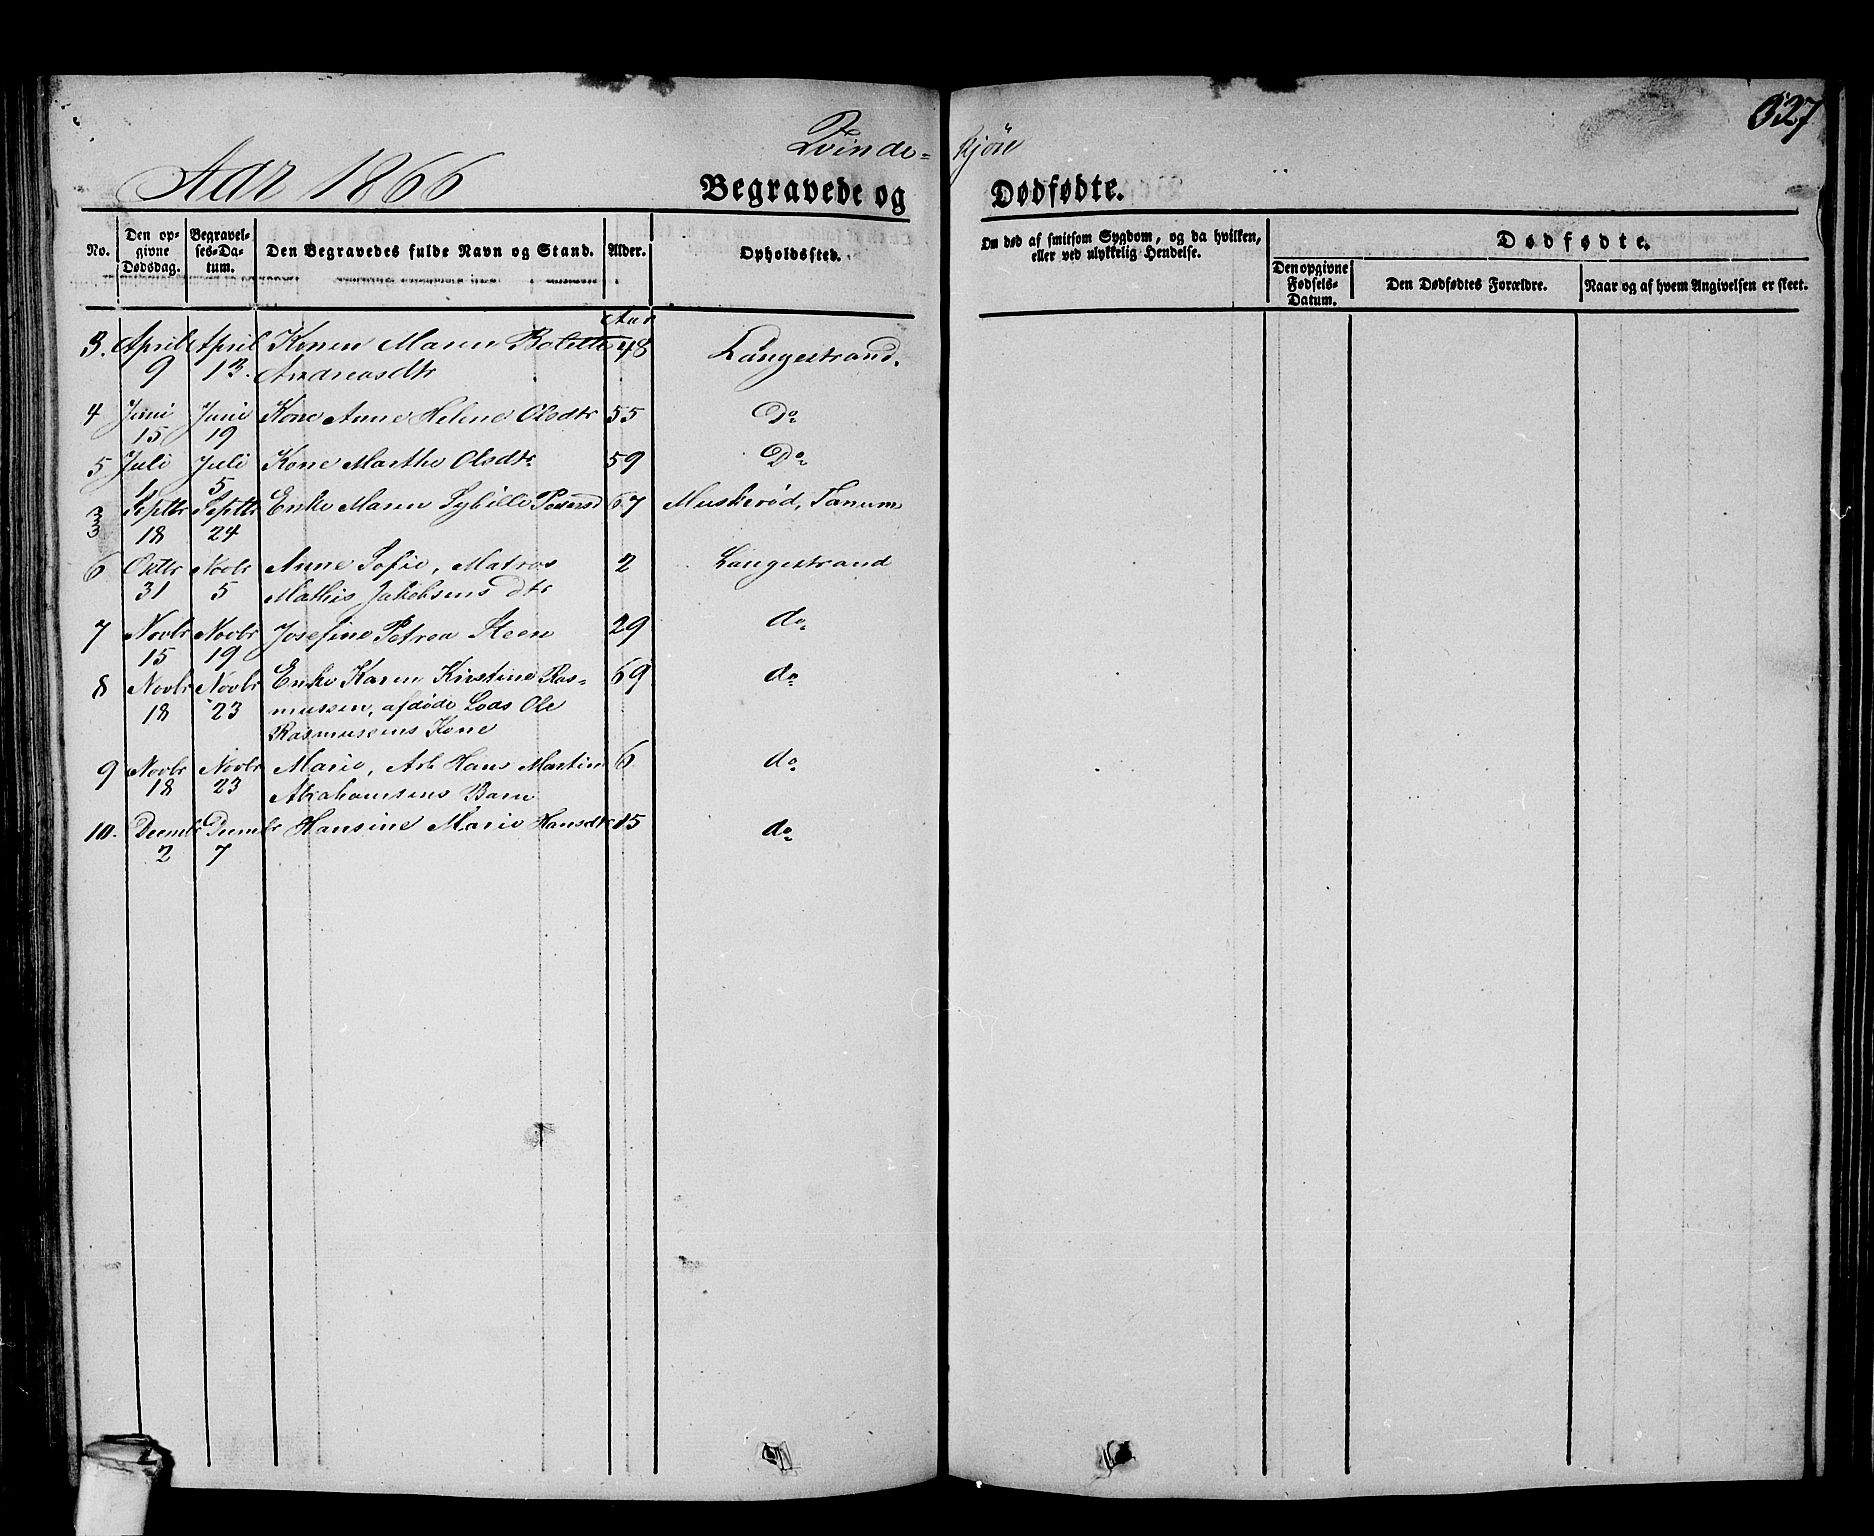 Qvinde- kjön
327
Aar 1866
Begravede og Dødfødte.
No. Den opgivne Dødsdag. Begravelses-Datum. Den Begravedes fulde Navn og Stand. Alder. Opholdssted. Om død af smitsom Sygdom, og da hvilken, eller ved ulykkelig Hendelse. Dødfødte.
Den opgivne Fødsels-Datum. Den Dødfødtes Forældre. Naar og af hvem Angivelsen er skeet.
Aar
3. April April Konen Maren Bolette 48 Langestrand.
9 13. Andreasdtr
4 Juni Juni Kone Anne Helene Olsdtr 55 Do
15 19
5 Juli Juli Kone Marthe Olsdtr 59 Do
1 5
3 Septbr Septbr Enke Maren Sybille Pedersd 67 Muskerød, Tanum
3 18 24
6 Octbr Novbr Anne Sofie, Matros 2 Langestrand
31 5 Mathis Jakobsens dtr
7 Novbr Novbr Josefine Petrea Steen 29 do
15 19
8 Novbr Novbr Enke Karen Kirstine Ras- 69 do
18 23 mussen, afdøde Lods Ole
Rasmussens Kone
9 Novbr Novbr Marie, Arb Hans Martin 6 do
18 23 Abrahamsens Barn
10. Decmbr Decmbr Hansine Marie Hansdtr 15 do
2 7